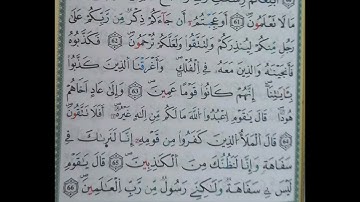 مَا لَا تَعْلَمُونَ ﴿٦٢﴾ أَوَعَجِبْتُمْ أَن جَاءَكُمْ ذِكْرٌ مِّن رَّبِّكُمْ عَلَىٰ
رَجُلٍ مِّنكُمْ لِيُنذِرَكُمْ وَلِتَتَّقُوا وَلَعَلَّكُمْ تُرْحَمُونَ ﴿٦٣﴾ فَكَذَّبُوهُ
فَأَنجَيْنَاهُ وَالَّذِينَ مَعَهُ فِي الْفُلْكِ وَأَغْرَقْنَا الَّذِينَ كَذَّبُوا
بِآيَاتِنَا إِنَّهُمْ كَانُوا قَوْمًا عَمِينَ ﴿٦٤﴾ وَإِلَىٰ عَادٍ أَخَاهُمْ
هُودًا قَالَ يَاقَوْمِ اعْبُدُوا اللَّهَ مَا لَكُم مِّنْ إِلَٰهٍ غَيْرُهُ أَفَلَا تَتَّقُونَ
﴿٦٥﴾ قَالَ الْمَلَأُ الَّذِينَ كَفَرُوا مِن قَوْمِهِ إِنَّا لَنَرَاكَ فِي
سَفَاهَةٍ وَإِنَّا لَنَظُنُّكَ مِنَ الْكَاذِبِينَ ﴿٦٦﴾ قَالَ يَاقَوْمِ
لَيْسَ بِي سَفَاهَةٌ وَلَٰكِنِّي رَسُولٌ مِّن رَّبِّ الْعَالَمِينَ ﴿٦٧﴾